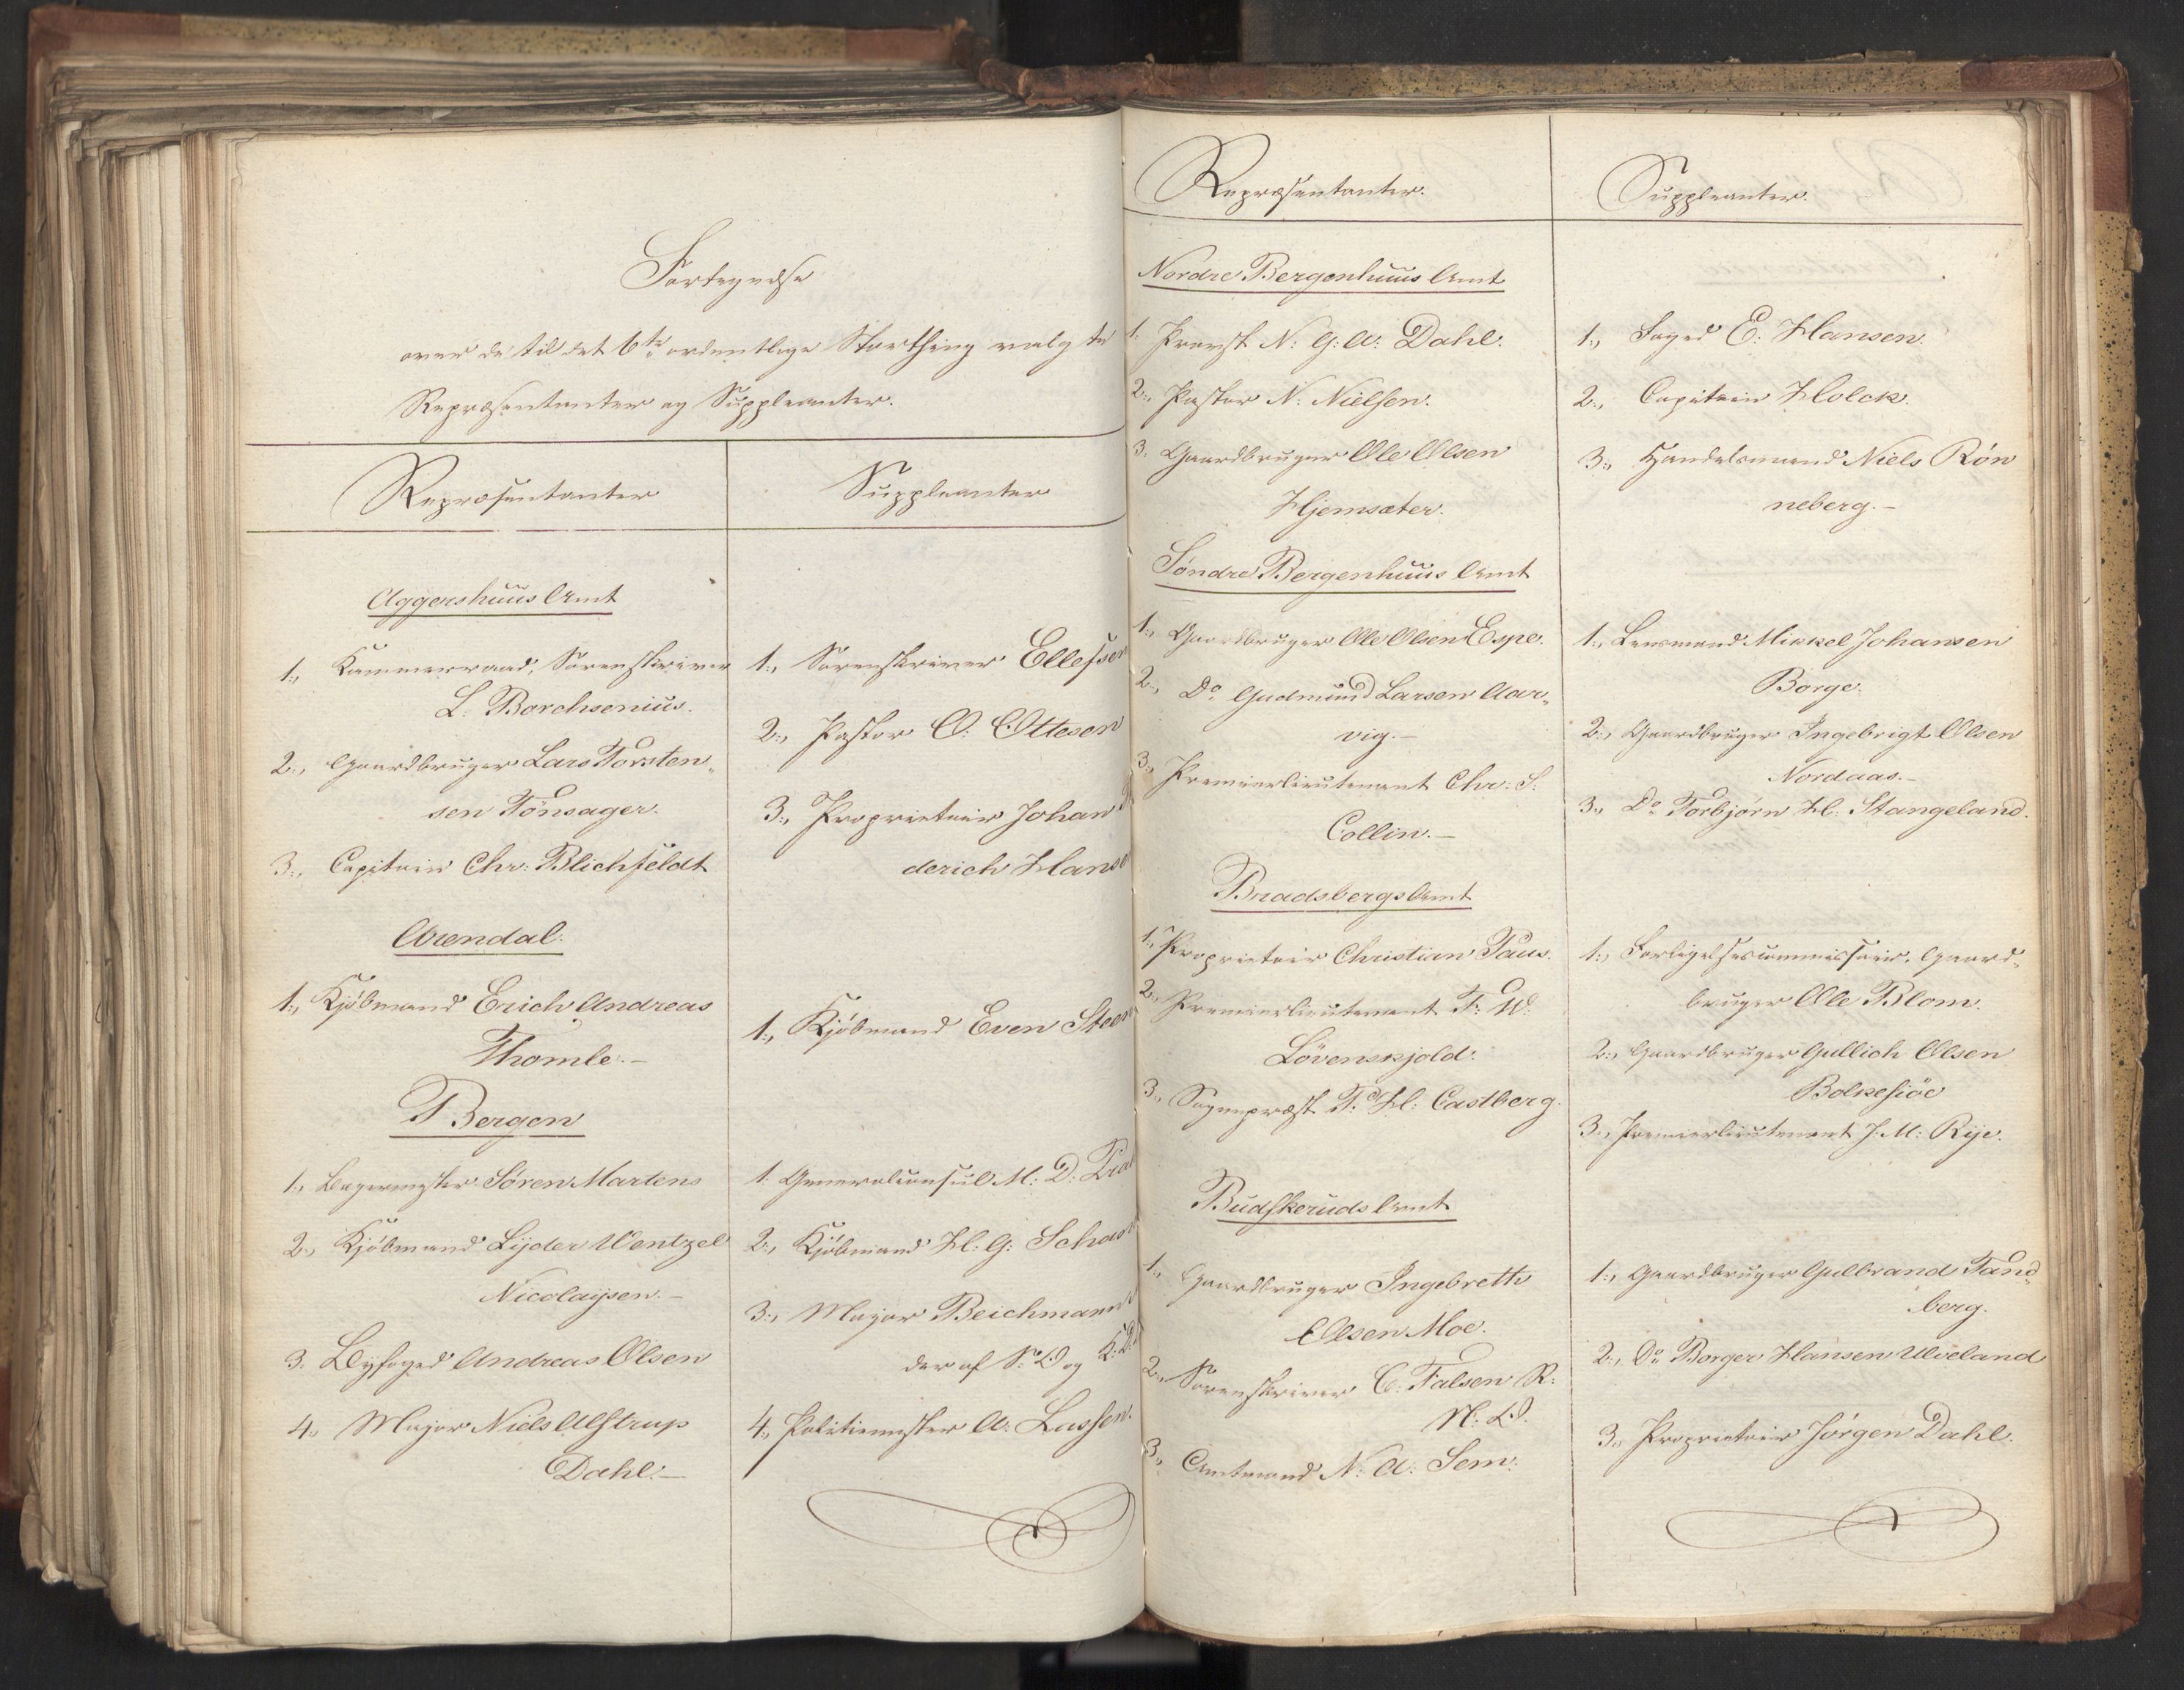 Fortegnelse
over de til det 6te ordentlige Storthing valgte
Repræsentanter og Suppleanter.
Repræsentanter
Aggershuus Amt
1., Kammerraad, Sorenskriver
L. Borchsenius.
2., Gaardbruger Lars Torsten„
sen Tönsager.
3., Capitain Chr: Blichfeldt
Arendal.
1., Kjöbmand Erich Andreas
Thomle.–
Bergen
1., Bagermester Sören Martens
2., Kjöbmand Lÿder Wentzel
Nicolaÿsen.–
3. Byfoged Andreas Olsen
4., Major Niels Alstrup
Dahl.–
Suppleanter
1., Sorenskriver Ellefsen
2., Pastor O. Ottesen
3., Proprietair Johan
derich Hans
1., Kjöbmand Even Steen
1. Generalconsul M: D:
2., Kjöbmand H: G: Schas
3., Major Beichmann
der af S: O og
4., Politimester A: Lassen.
Repræsentanter.
Nordre Bergenhuus Amt
1. Provst N: G: A: Dahl.
2., Pastor N: Nielsen.
3. Gaardbruger Ole Olsen
Hjemsæter.
Söndre Bergenhuus Amt
1., Gaardbruger Ole Olsen Espe.
2., Do Gudmund Larsen Aar„
vig.–
3., Premierlieutenant Chr: S:
Collin.–
Bradsbergs Amt
1., Proprietair Christian Paus.
2., Premierlieutenant F: W:
Lövenskjold.
3., Sognepræst P. H: Castberg.
Budskeruds Amt
1., Gaardbruger Ingebreth
Olsen Moe.
2., Sorenskriver C. Falsen R:
N: O.
3., Amtmand N: A: Sem.
Suppleanter.
1., Foged E: Hansen.
2., Capitain Holck.
3., Handelsmand Niels Rön
neberg.–
1., Lensmand Mikkel Johansen
Borge.
2., Gaardbruger Ingebrigt Olsen
Nordaas.–
3., Do Torbjörn H. Stangeland.
1., Forligelsescommissair, Gaard„
bruger Ole Blom.
2., Gaardbruger Gullich Olsen
Bolkesjöe
3., Premierlieutenant J. M: Rÿe.
1., Gaardbruger Gulbrand Tand„
berg.
2., Do Borger Hansen Ulveland
3., Proprietair Jörgen Dahl.